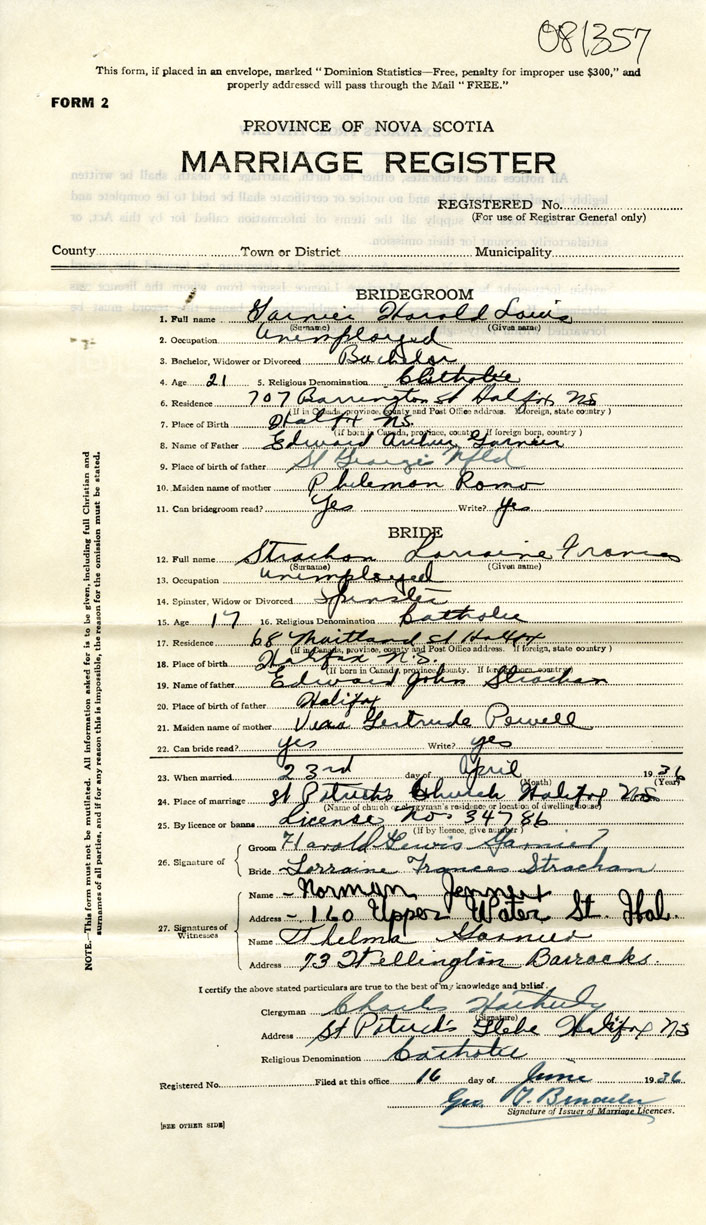 081357
This form, if placed in an envelope, marked "Dominion Statistics—Free, penalty for improper use $300," and
properly addressed will pass through the Mail "FREE."
FORM 2
PROVINCE OF NOVA SCOTIA
MARRIAGE REGISTER
REGISTERED No.
(For use of Registrar General only)
County Town or District Municipality
BRIDEGROOM
1. Full name Garnier Harold Lewis
(Surname) (Given name)
2. Occupation Unemployed
3. Bachelor, Widower or Divorced Bachelor
4. Age 21 5. Religious Denomination Catholic
6. Residence 707 Barrington st Halifax NS
(If in Canada, province, county and Post Office address. If foreign, state country)
7. Place of Birth Halifax NS.
(If born in Canada, province, county. If foreign born, country)
8. Name of Father Edward Arthur Garnier
9. Place of birth of father St Georges Nfld
10. Maiden name of mother Philemon Romo
11. Can bridegroom read? Yes Write? Yes
BRIDE
12. Full name Strachan Lorraine Frances
(Surname) (Given name)
13. Occupation Unemployed
14. Spinster, Widow or Divorced Spinster
15. Age 17 16. Religious Denomination Catholic
17. Residence 68 Maitland st Halifax
(If in Canada, province, county and Post Office address. If foreign, state country)
18. Place of birth Halifax N.S.
(If born in Canada, province, county. If foreign born, country)
19. Name of father Edward John Strachan
20. Place of birth of father Halifax
21. Maiden name of mother Gertrude Powell
22. Can bride read? yes Write? yes
23. When married 23rd day of April 1936
(Month) (Year)
24. Place of marriage St Patrick's Church Halifax N.S.
(Name of church or clergyman's residence or location of dwelling house)
25. By licence or banns License No. 34786
(If by licence, give number)
26. Signature of
Groom Harold Lewis Garnier
Bride Lorraine Frances Strachan
27. Signatures of Witnesses
Name Norman Jennex
Address 160 Upper Water St. Hal.
Name Thelma Garnier
Address 73 Wellington Barracks.
I certify the above stated particulars are true to the best of my knowledge and belief.
Clergyman Charles
(Signature)
Address St Patrick's Glebe Halifax NS
Religious Denomination Catholic
Registered No. Filed at this office 16 day of June 1936
Geo.
Signature of Issuer of Marriage Licences.
[SEE OTHER SIDE]
NOTE.—This form must not be mutilated. All information asked for is to be given, including full Christian and
surnames of all parties, and if for any reason this is impossible, the reason for the omission must be stated.